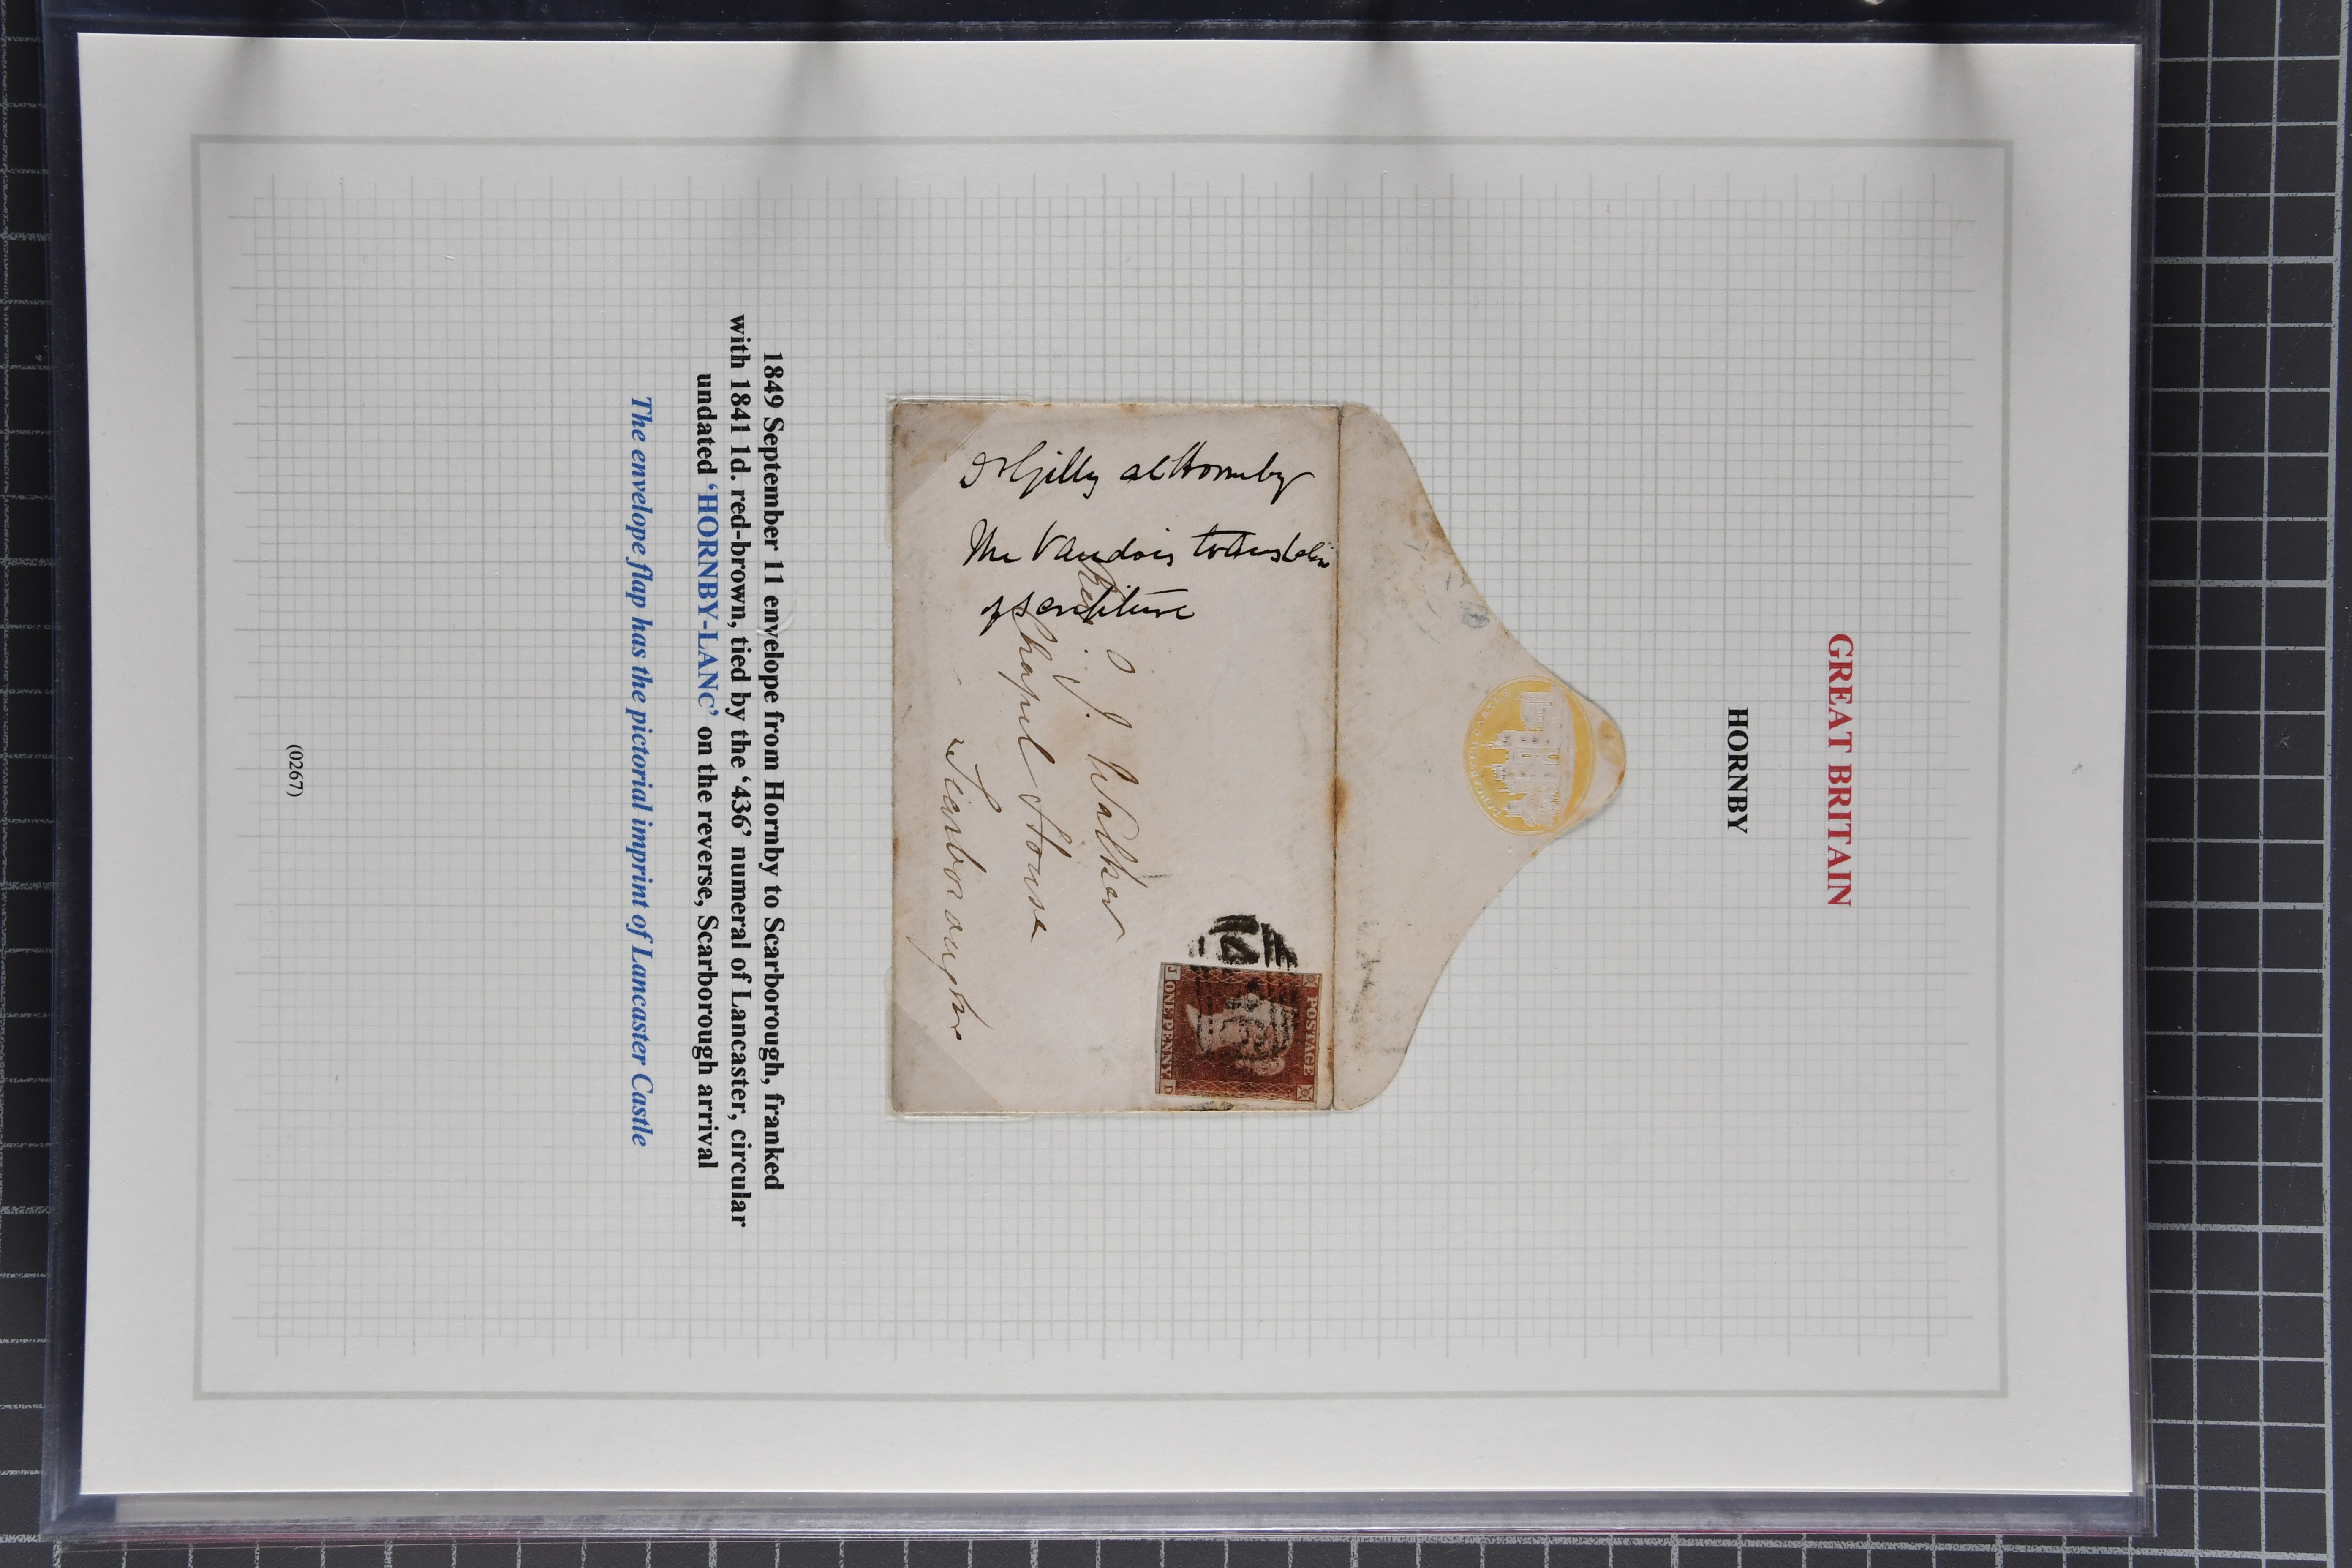 GREAT BRITAIN
HORNBY
POSTAGE
J ONE PENNY D
Rev. J. Walker
Chapel House
Scarborough
at Hornby
The Vaudois
of scripture
1849 September 11 envelope from Hornby to Scarborough, franked
with 1841 1d. red-brown, tied by the ‘436’ numeral of Lancaster, circular
undated ‘HORNBY-LANC’ on the reverse, Scarborough arrival
The envelope flap has the pictorial imprint of Lancaster Castle
(0267)